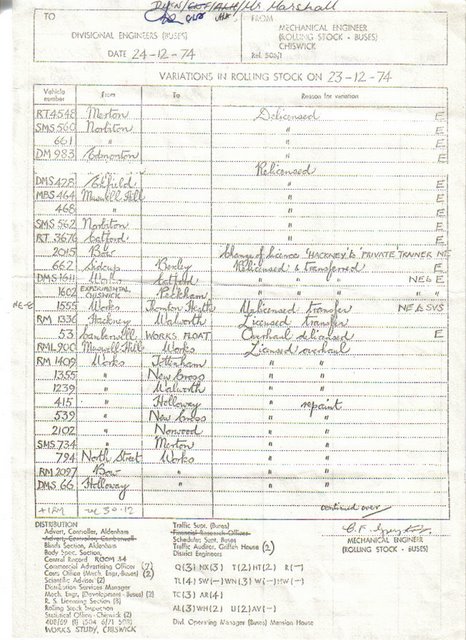 Mr Marshall
TO FROM
DIVISIONAL ENGINEERS (BUSES) MECHANICAL ENGINEER
(ROLLING STOCK - BUSES)
CHISWICK
DATE 24-12-74 Ref.
VARIATIONS IN ROLLING STOCK ON 23-12-74
Vehicle number From To Reason for variation
RT4548 Merton Delicensed E
SMS 560 Norbiton " E
661 " " E
DM 983 Edmonton " E
Relicensed
DMS 428 Enfield " E
MBS 464 Muswell Hill " E
468 " " E
SMS 562 Norbiton " E
RT 3676 Catford " E
2015 Bow Change of licence 'HACKNEY' to 'PRIVATE' TRAINER NE
662 Sidcup Bexley Relicensed & transferred E
DMS Works Catford " " " NE to E
1602 EXPERIMENTAL CHISWICK Peckham " " " "
NE-E 1555 Works Thornton Heath Unlicensed transfer NE to SVS
RM 1336 Hackney Walworth Licensed transfer
53 Camberwell WORKS FLOAT Overhaul delicensed E
RML 900 Muswell Hill Works Licensed overhaul
RM 1409 Works Tottenham " "
1355 " New Cross " "
1239 " Walworth " "
415 " Holloway " repaint
539 " New Cross " "
2102 " Norwood " "
SMS 734 " Merton " "
794 North Street Works " "
RM 2097 Bow " " "
DMS 66 Holloway " " "
30.12 continued over
DISTRIBUTION
Advert. Controller, Aldenham
Advert. Controller, Camberwell
Blinds Section, Aldenham
Body Spec. Section,
Central Record ROOM
Commercial Advertising Officer (7)
Cars Office (Mech. Engr. Buses) (2)
Scientific Adviser (2)
Distribution Services Manager
Mech. Engr. (Development - Buses) (2)
R. S. Licensing Section (3)
Rolling Stock Inspection
Statistical Office - Chiswick (2)
WORKS STUDY, CHISWICK
Traffic Supt. (Buses)
Financial Research Officer
Schedules Supt. Buses
Traffic Auditor, Griffith House (2)
District Engineers
Q(3) NX(3) T(2) HT(2) R(-)
TL(4) SW(-) WN(3) W(-) HW(-)
TC(3) AR(4)
AL(3) WH(2) U(2) AV(-)
Divl. Operating Manager (Buses) Mansion House
MECHANICAL ENGINEER
(ROLLING STOCK - BUSES)